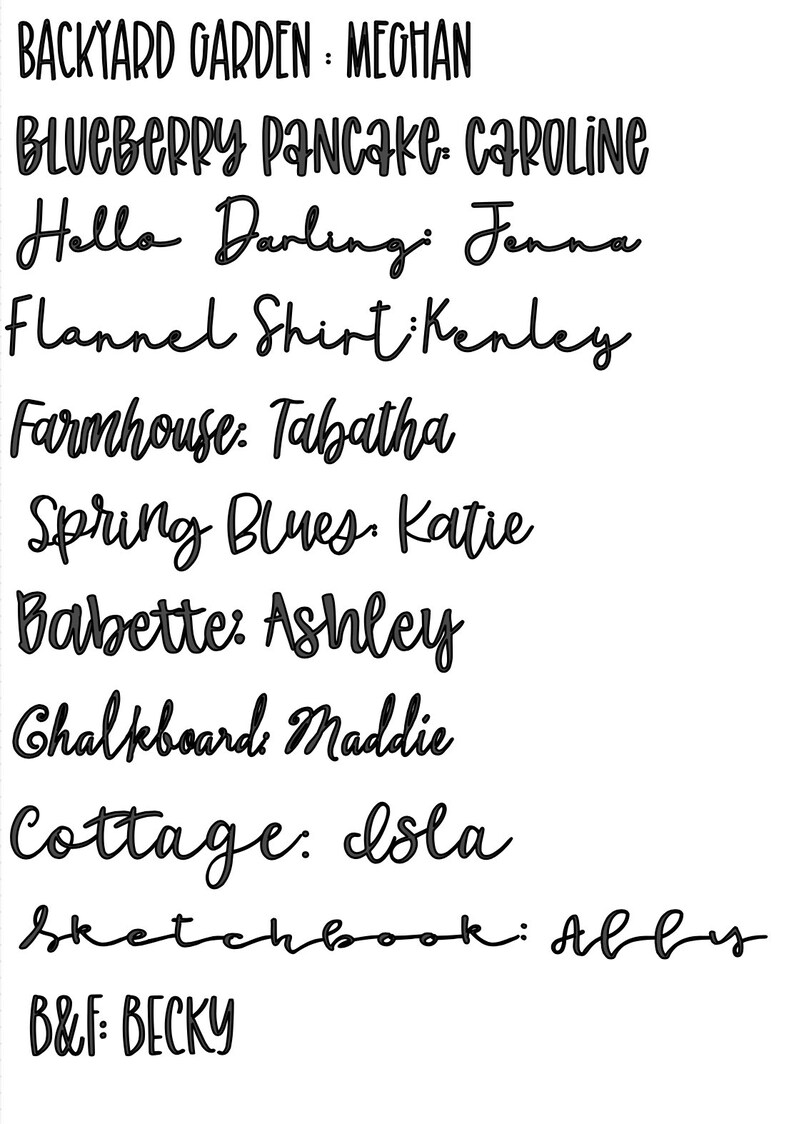 BACKYARD GARDEN : MEGHAN
BLUEBERRY PANCAKE: CAROLINE
Hello Darling: Jenna
Flannel Shirt:Kenley
Farmhouse: Tabatha
Spring Blues: Katie
Babette: Ashley
Chalkboard: Maddie
Cottage: Isla
Sketchbook: Abby
B&F: BECKY